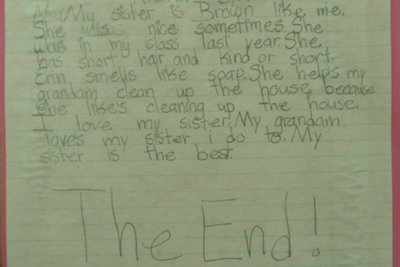 MuMy sister is Brown like me.
She is nice sometimes. She
was in my class last year. She
has short hair, and kind or short.
Erin smells like soap. She helps my
grandam clean up the house, because
she like's cleaning up the house.
I love my sister. My grandam
loves my sister i do to. My
sister is the best.
The End!